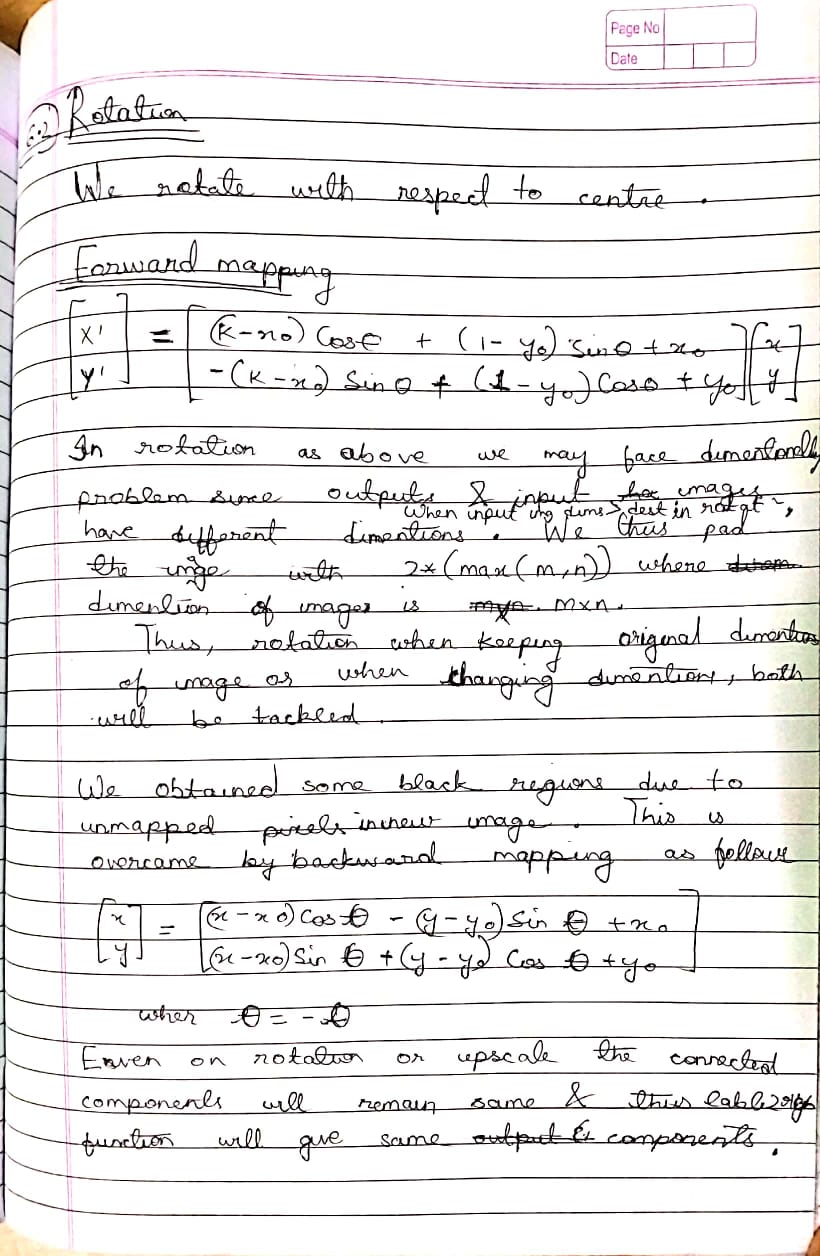 Page No
Date
6.2) Rotation
We rotate with respect to centre.
Forward mapping
[x' y'] = [(k-x0) Cosθ + (1-y0) Sinθ + x0
-(k-x0) Sinθ + (1-y0) Cosθ + y0] [x y]
In rotation as above we may face dimentionally
problem since outputs & input images
When input img dims > dest in rotatn,
have different dimentions. We thus pad
the imge with 2*(max(m,n)) where
dimention of images is mxn.
Thus, rotation when keeping original dimentions
of image or when changing dimentions, both
will be tackled.
We obtained some black regions due to
unmapped pixels in new image. This is
overcame by backward mapping as follows
[x y] = [(x-x0) Cos θ - (y-y0) Sin θ + x0
(x-x0) Sin θ + (y-y0) Cos θ + y0]
wher θ = -θ
Enven on rotation or upscale the connected
components will remain same & thus
function will give same components.